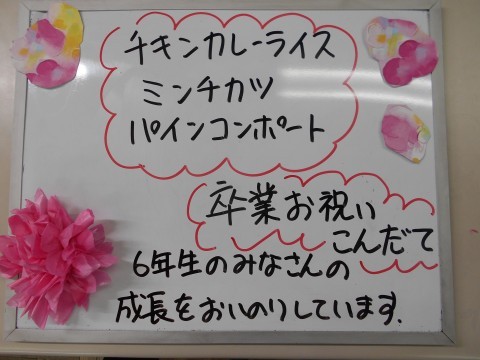 チキンカレーライス
ミンチカツ
パインコンポート
卒業お祝い
こんだて
6年生のみなさんの
成長をおいのりしています.